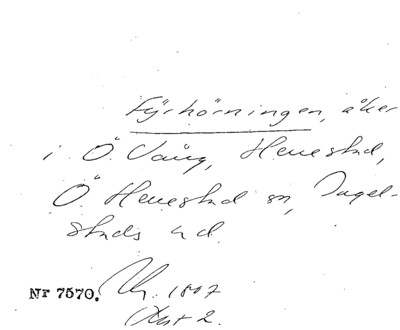 Fyrhörningen, åker
i Ö. Vång, Henestad,
Ö. Henestad sn, Ingel-
stads hd.
Nr 7570. 1807
Akt 2.